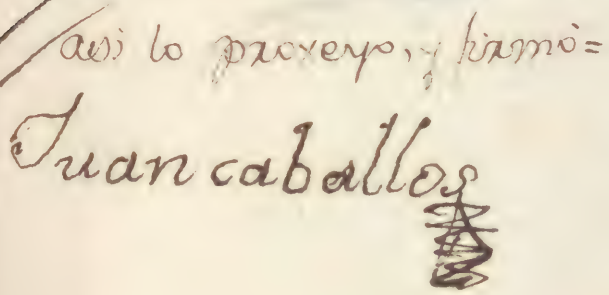 asi lo proveyo, y firmó=
Juan caballos